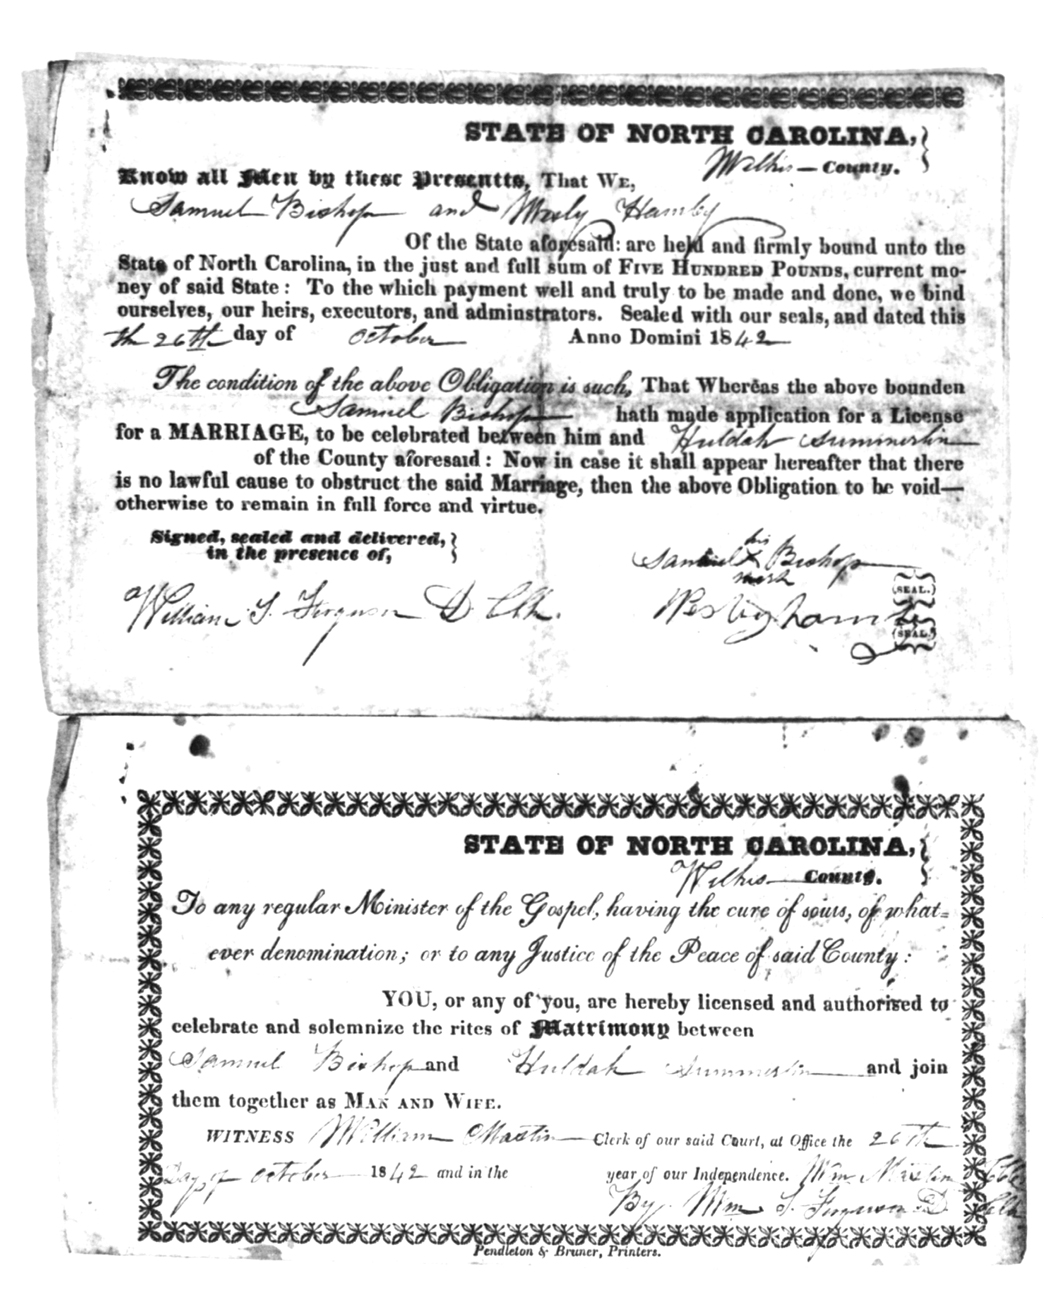 STATE OF NORTH CAROLINA,
Wilkes County.
Know all Men by these Presentts, That We,
Samuel Bishop and Wesly Hamby
Of the State aforesaid: are held and firmly bound unto the
State of North Carolina, in the just and full sum of Five Hundred Pounds, current mo-
ney of said State: To the which payment well and truly to be made and done, we bind
ourselves, our heirs, executors, and adminstrators. Sealed with our seals, and dated this
th 26th day of October Anno Domini 1842
The condition of the above Obligation is such, That Whereas the above bounden
Samuel Bishop hath made application for a License
for a MARRIAGE, to be celebrated between him and Huldah Summerlin
of the County aforesaid: Now in case it shall appear hereafter that there
is no lawful cause to obstruct the said Marriage, then the above Obligation to be void—
otherwise to remain in full force and virtue.
Signed, sealed and delivered,
in the presence of,
his
Samuel X Bishop
mark
(SEAL.)
William S. Ferguson D Clk.
Wesly hamby
(SEAL.)
STATE OF NORTH CAROLINA,
Wilkes County.
To any regular Minister of the Gospel, having the cure of souls, of what-
ever denomination; or to any Justice of the Peace of said County:
YOU, or any of you, are hereby licensed and authorised to
celebrate and solemnize the rites of Matrimony between
Samuel Bishop and Huldah Summerlin and join
them together as Man and Wife.
WITNESS William Mastin Clerk of our said Court, at Office the 26th
Day of October 1842 and in the year of our Independence. Wm Mastin Clk
By Wm S. Ferguson D Clk
Pendleton & Bruner, Printers.